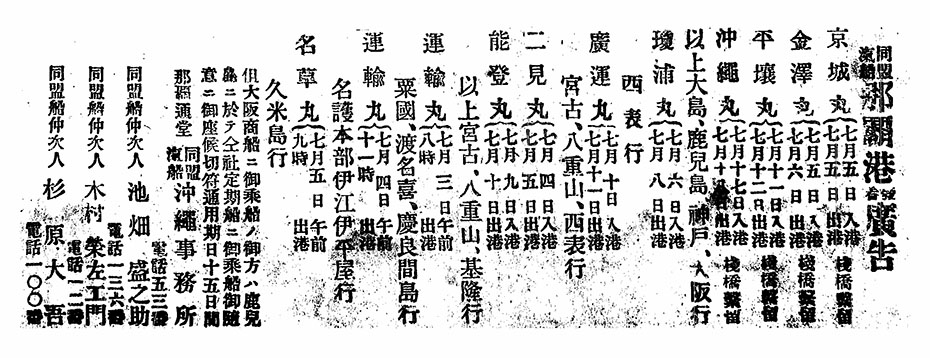 同盟汽船那覇港發着廣告
京城丸 七月五日入港 七月五日出港 棧橋繫留
金澤丸 七月六日出港 棧橋繫留
平壤丸 七月十一日入港 七月十二日出港 棧橋繫留
沖繩丸 七月十七日入港 七月十八日出港 棧橋繫留
以上大島、鹿兒島、神戸、大阪行
瓊浦丸 七月六日入港 七月八日出港
西表行
廣運丸 七月十日入港 七月十一日出港
宮古、八重山、西表行
二見丸 七月四日入港 七月五日出港
能登丸 七月九日入港 七月十日出港
以上宮古、八重山、基隆行
運輸丸 七月三日午前八時出港
粟國、渡名喜、慶良間島行
運輸丸 七月四日午前十一時出港
名護本部伊江伊平屋行
名草丸 七月五日午前九時出港
久米島行
但大阪商船ニ御乘船ノ御方ハ鹿兒
島ニ於テ仝社定期船ニ御乘船御隨
意ニ御座候切符通用期日十五日間
那覇通堂 同盟汽船沖繩事務所
電話五三番
同盟船仲次人 池畑盛之助
電話一三六番
同盟船仲次人 木村榮左エ門
電話一二番
同盟船仲次人 杉原大吾
電話一〇〇番